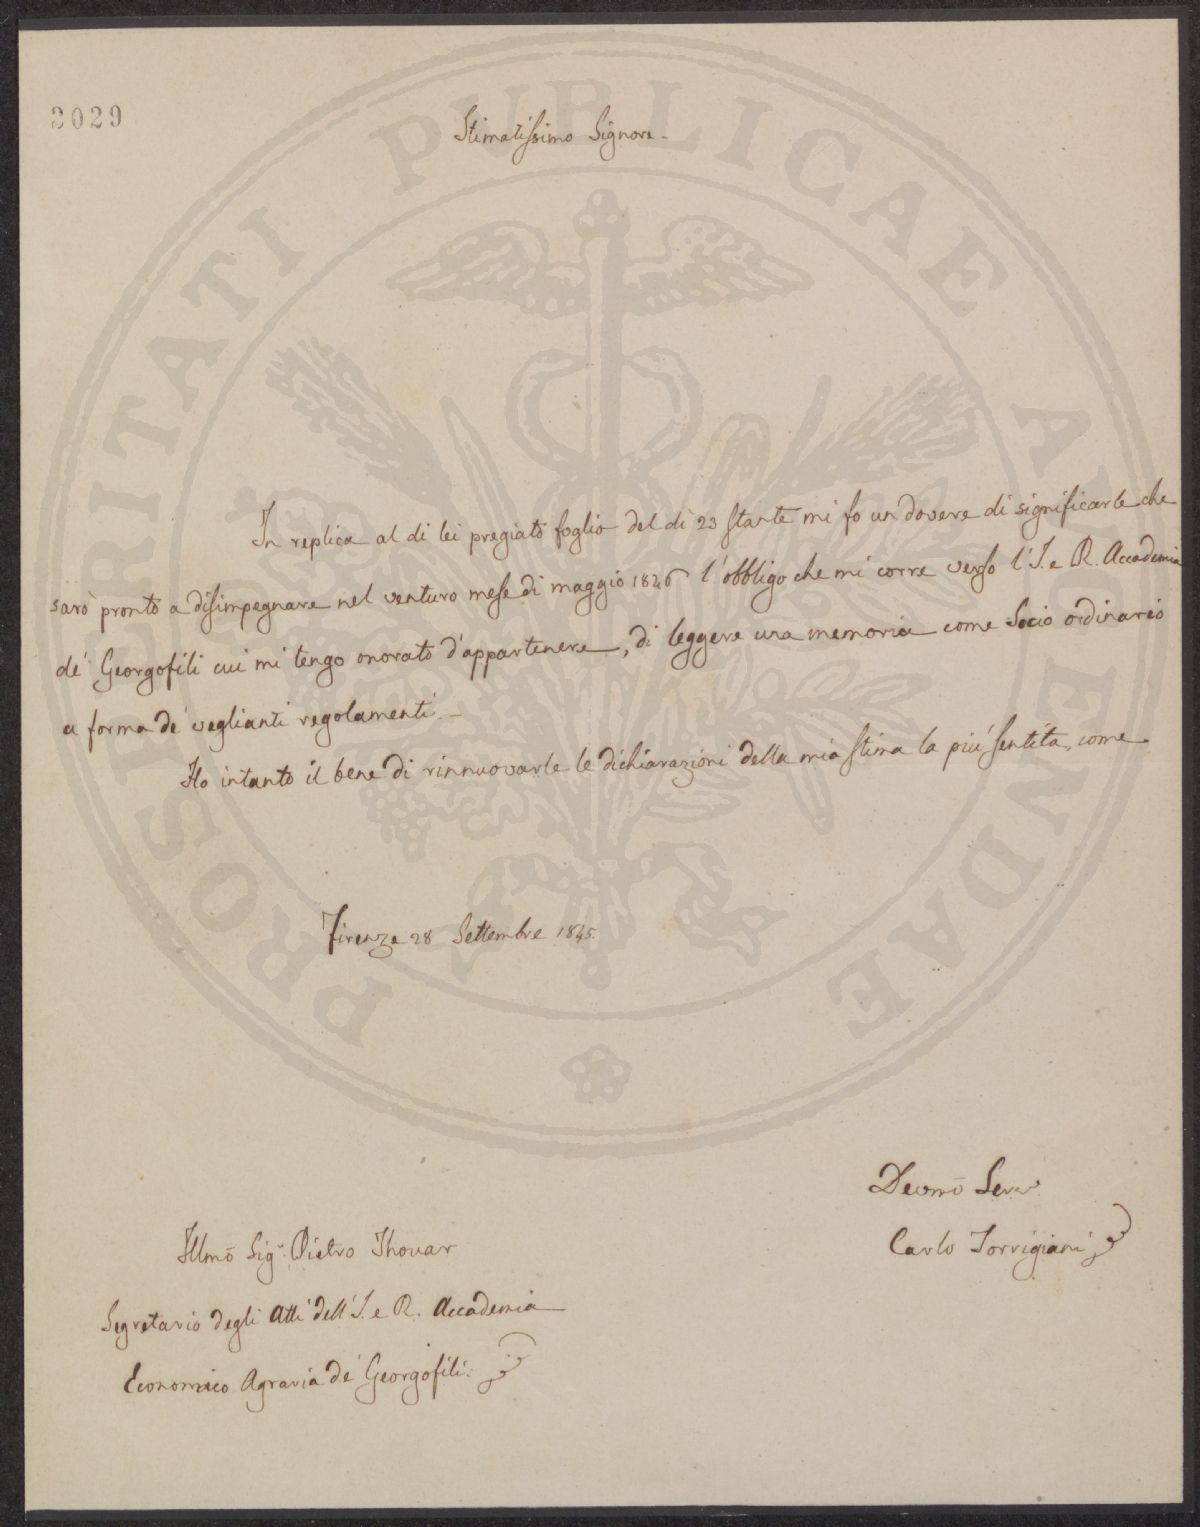 2029
Stimatissimo Signore.
In replica al di lei pregiato foglio del dì 23 stante mi fo un dovere di significarle che
sarò pronto a disimpegnare nel venturo mese di maggio 1846 l'obbligo che mi corre verso l'I. e R. Accademia
de' Georgofili cui mi tengo onorato d'appartenere, di leggere una memoria come Socio ordinario
a forma de' veglianti regolamenti. -
Ho intanto il bene di rinnuovarle le dichiarazioni della mia stima la più sentita, come
Firenze 28 Settembre 1845.
Devmõ Serv.
Carlo Torrigiani
Illmõ Sigr. Pietro Thouar
Segretario degli Atti dell'I. e R. Accademia
Economico Agraria de' Georgofili.
PROSPERITATI PUBLICAE AUGENDAE